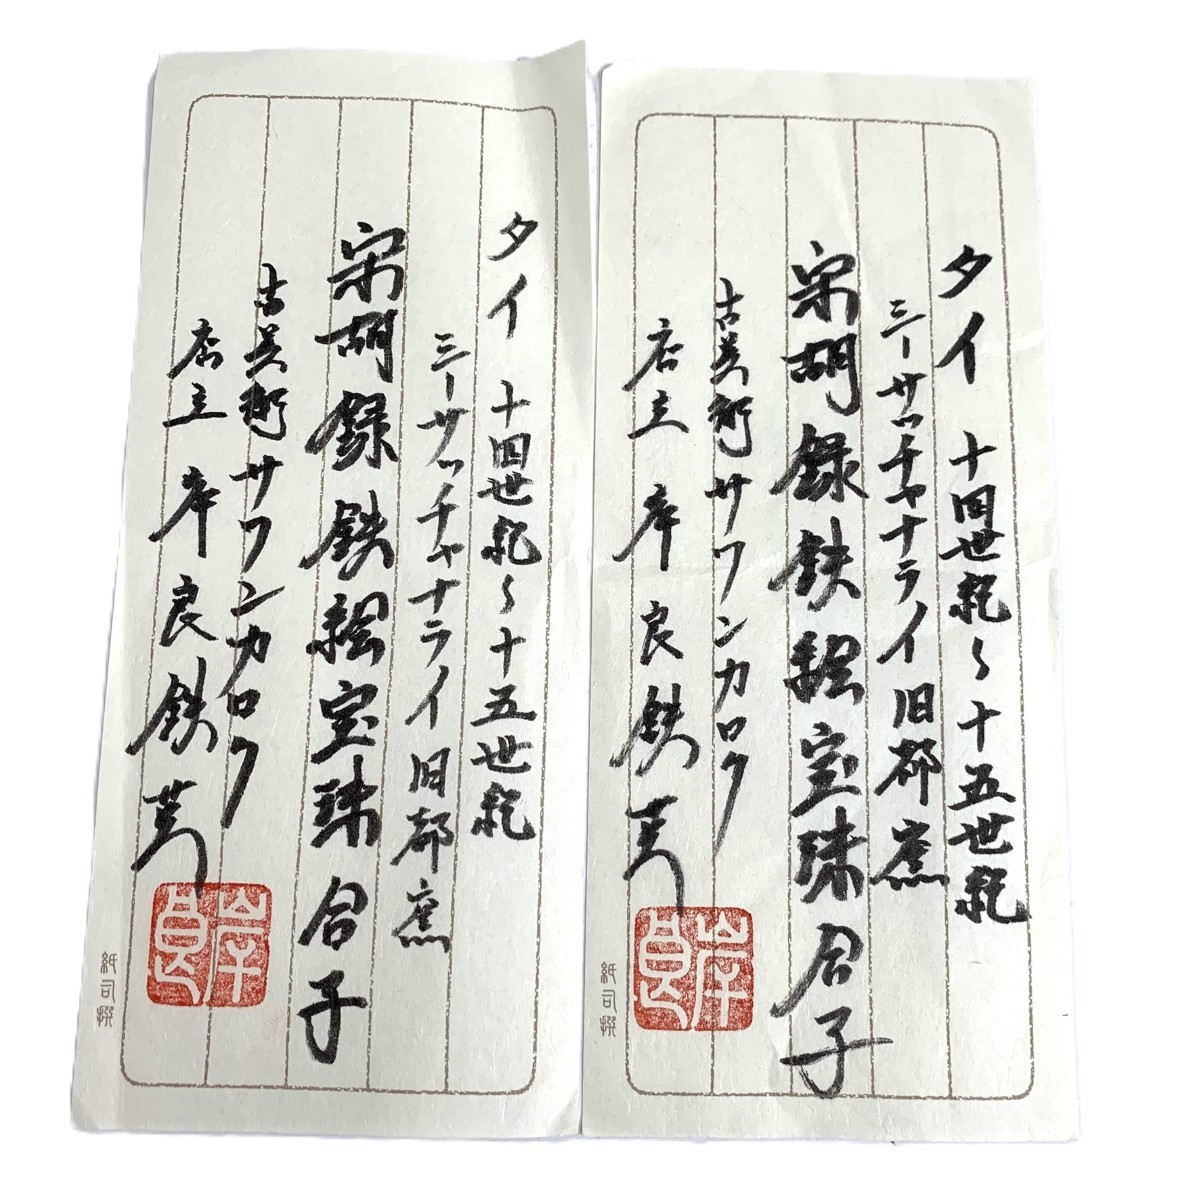 タイ 十四世紀〜十五世紀
シーサッチャナライ旧都窯
宋胡録鉄絵宝珠合子
古美術サワンカロク
店主 岸良鉄英
岸良
紙司撰
タイ 十四世紀〜十五世紀
シーサッチャナライ旧都窯
宋胡録鉄絵宝珠合子
古美術サワンカロク
店主 岸良鉄英
岸良
紙司撰